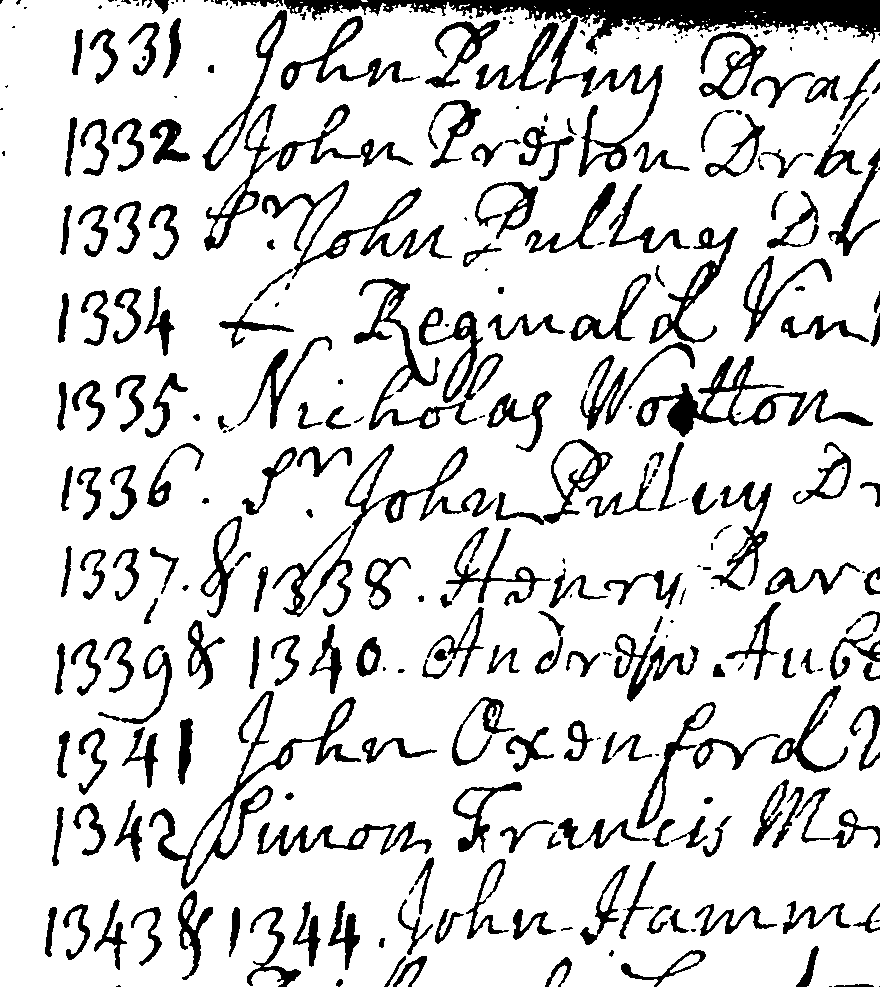 1331. John Pultny Drap
1332 John Preston Drap
1333 Sr. John Pultney Dr
1334 Reginald Vint
1335. Nicholas Wootton
1336. Sr. John Pultny Dr
1337. & 1338. Henry Darc
1339 & 1340. Andrew Aube
1341 John Oxenford V
1342 Simon Francis Mer
1343 & 1344. John Hammo